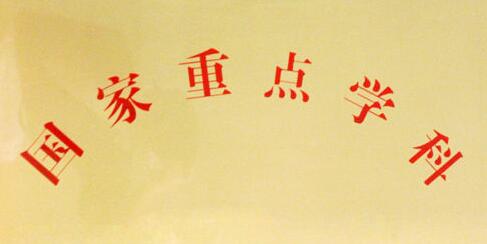 国家重点学科